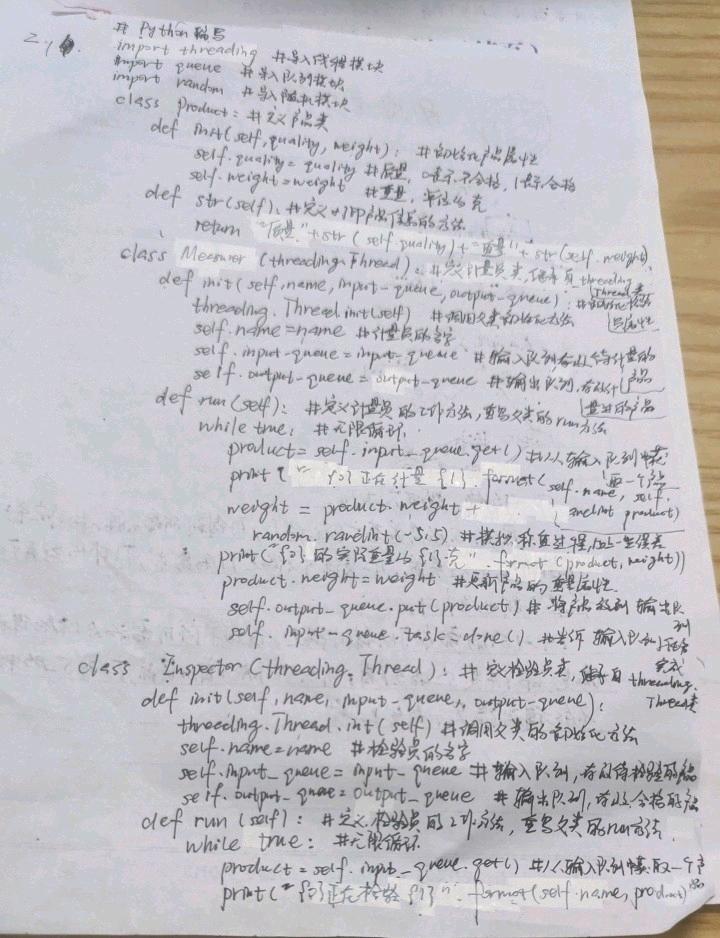 # Python 编写
2、
import threading #导入线程模块
import queue #导入队列模块
import random #导入随机模块
class product: #定义产品类
def init(self,quality,weight): #初始化产品属性
self.quality=quality #质量,0表示不合格,1表示合格
self.weight=weight #重量,单位为克
def str(self): #定义打印产品信息的方法
return "质量"+str(self.quality)+"重量"+str(self.weight)
class Measurer (threading.Thread): #定义计量员类,继承自threading.
Thread类
def init(self,name,input-queue,output-queue): #初始化方法
与属性
threading.Thread.init(self) #调用父类的初始化方法
self.name=name #计量员的名字
self.input-queue=input-queue #输入队列,存放待计量的
产品
self.output-queue=output-queue #输出队列,存放计
量过的产品
def run(self): #定义计量员的工作方法,重写父类的run方法
while true: #无限循环
product=self.input_queue.get() #从输入队列中获
取一个产品
print("{0}正在计量{1}.format(self.name, self.
product)
weight = product.weight+
random.randint(-5,5). #模拟称重过程,
print("{0}的实际重量为{1}克".format(product,weight))
product.weight=weight #更新产品的重量属性
self.output_queue.put(product) #将产品放到输出队
列
self.input-queue.task-done() #告诉输入队列任务
完成
class Inspector(threading.Thread): #定义检验员类,继承自threading.
Thread类
def init(self,name,input-queue,output-queue):
threading.Thread.int(self) #调用父类的初始化方法
self.name=name #检验员的名字
self.input_queue=input-queue #输入队列,存放待检验的产品
self.output-queue=output_queue #输出队列,存放合格的产品
def run(self): #定义检验员的工作方法,重写父类的run方法
while true: #无限循环
product=self.input-queue.get() #从输入队列中获取一个产
品
print("{0}正在检验{1}".format(self.name,product)